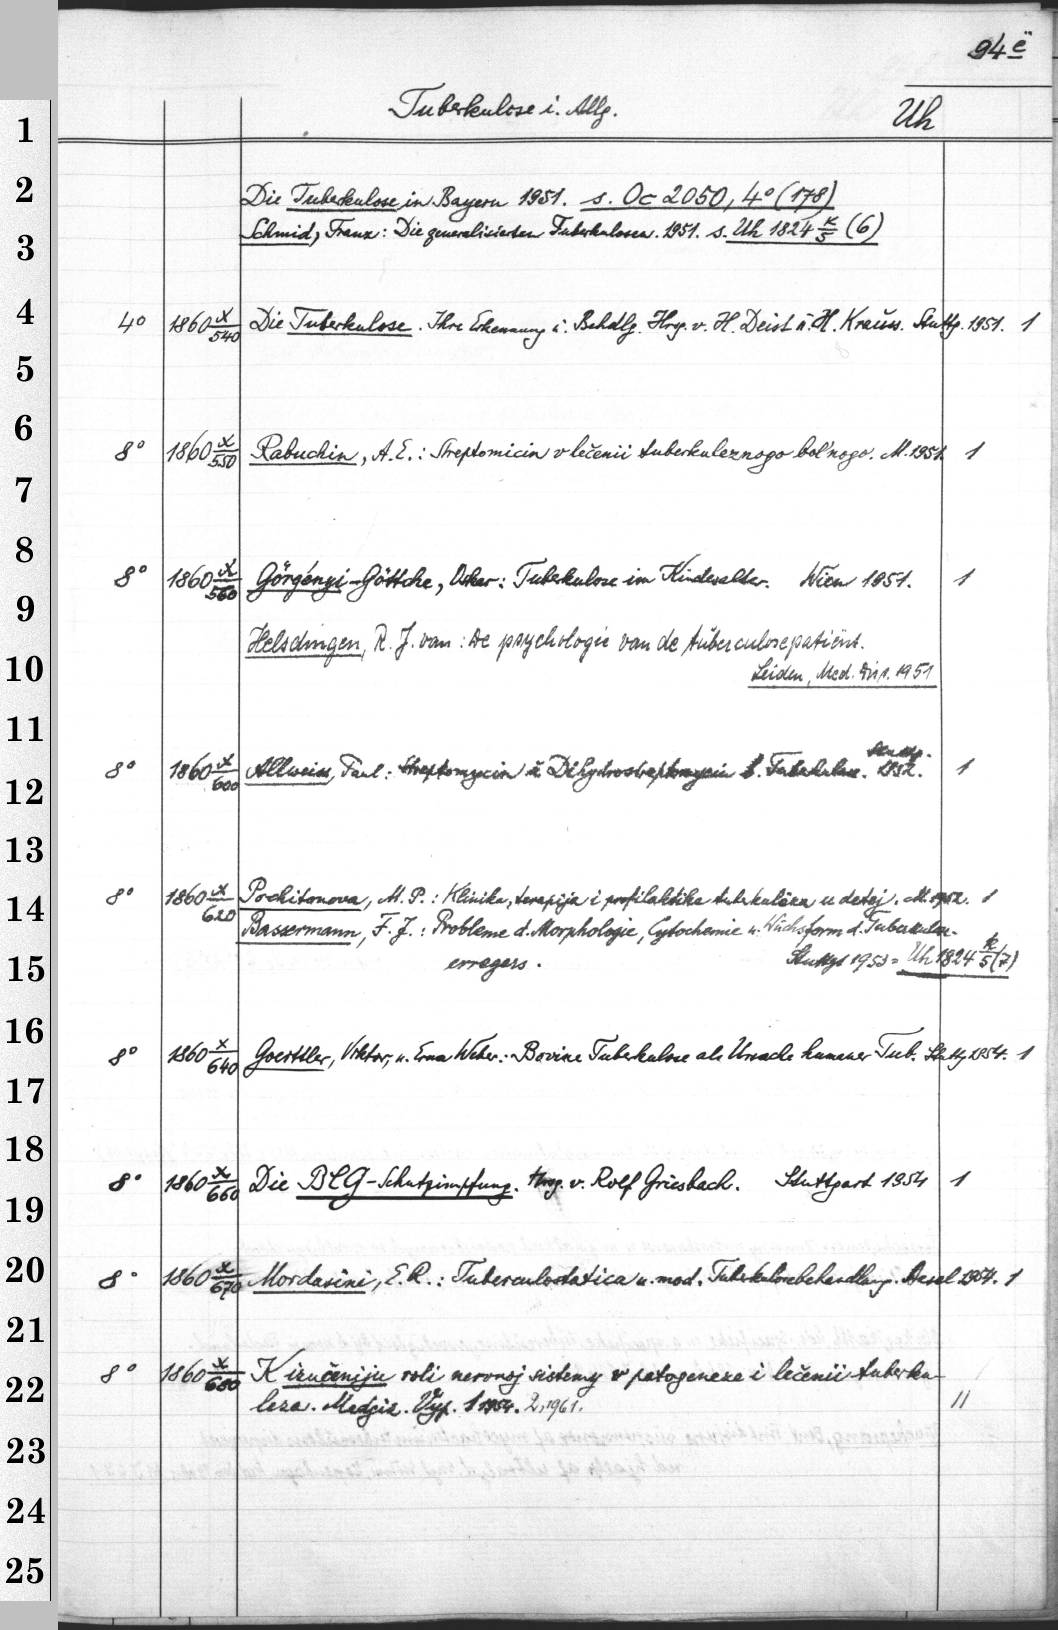 94 ë
Tuberkulose i. Allg. Uh
1
2
Die Tuberkulose in Bayern 1951. s. Oc 2050, 4° (178)
3
Schmid, Franz: Die generalisierten Tuberkulosen. 1951. s. Uh 1824 k/5 (6)
4
4° 1860 x/540 Die Tuberkulose. Ihre Erkennung u. Behdlg. Hrg. v. H. Deist u. H. Krauss. Stuttg. 1951. 1
5
6
8° 1860 x/550 Rabuchin, A. E.: Streptomicin v lečenii tuberkuleznogo bol'nogo. M. 1951. 1
7
8
8° 1860 x/560 Görgényi-Göttche, Oskar: Tuberkulose im Kindesalter. Wien 1951. 1
9
Helsdingen, R. J. van: De psychologie van de tuberculosepatiënt.
10
Leiden, Med. Diss. 1951
11
8° 1860 x/600 Allweiss, Paul: Streptomycin u. Dihydrostreptomycin b. Tuberkulose. Stuttg. 1952. 1
12
13
8° 1860 x/620 Pochitonova, M. P.: Klinika, terapija i profilaktika tuberkuleza u detej. M. 1952. 1
14
Bassermann, F. J.: Probleme d. Morphologie, Cytochemie u. Wuchsform d. Tuberkulose-
15
erregers. Stuttgt 1953 = Uh 1824 k/5 (7)
16
8° 1860 x/640 Goerttler, Viktor, u. Erna Weber: Bovine Tuberkulose als Ursache humaner Tub. Stuttg 1954. 1
17
18
8° 1860 x/660 Die BCG-Schutzimpfung. Hrsg. v. Rolf Griesbach. Stuttgart 1954 1
19
20
8° 1860 x/670 Mordasini, E. R.: Tuberculostatica u. mod. Tuberkulosebehandlung. Basel 1954. 1
21
8° 1860 x/680 K izučeniju roli nervnoj sistemy v patogeneze i lečenii tuberku-
22
leza. Medgiz. Vyp. 1 1954. 2, 1961. 11
23
24
25